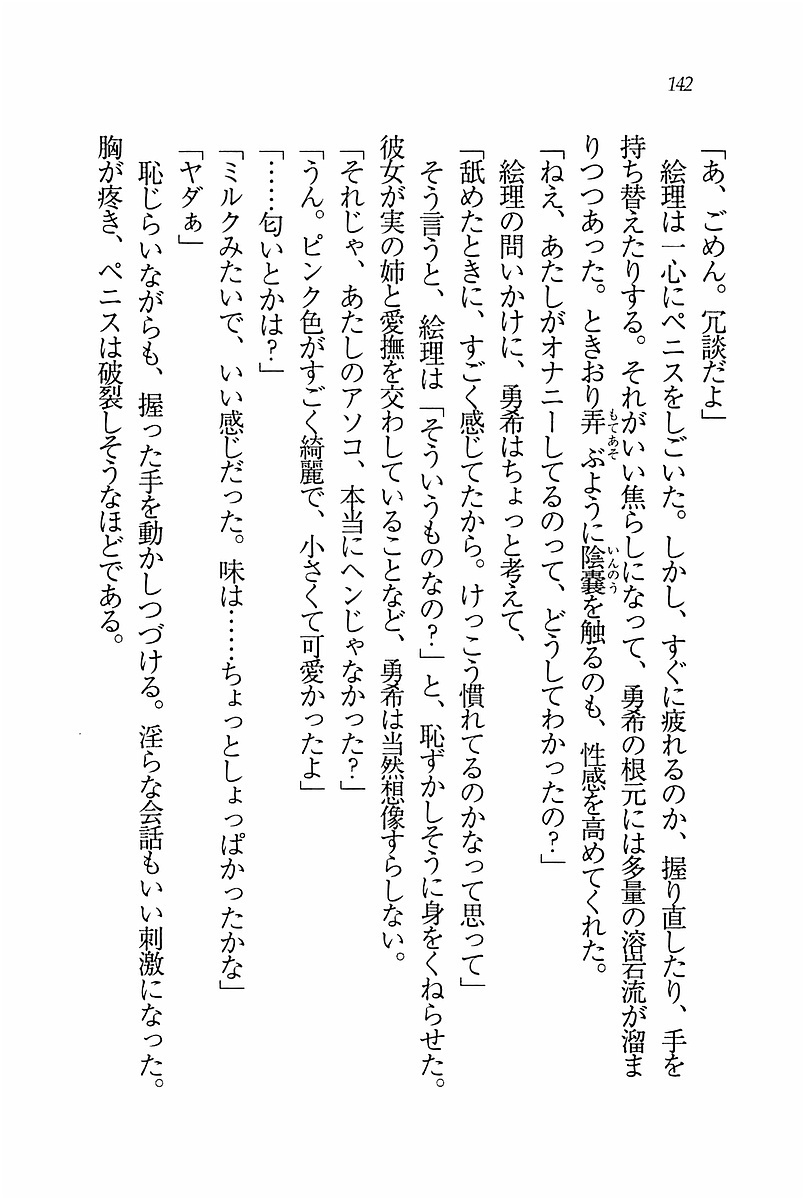 142
「あ、ごめん。冗談だよ」
絵理は一心にペニスをしごいた。しかし、すぐに疲れるのか、握り直したり、手を
持ち替えたりする。それがいい焦らしになって、勇希の根元には多量の溶岩流が溜ま
りつつあった。ときおり弄ぶように陰嚢を触るのも、性感を高めてくれた。
もてあそ
いんのう
「ねえ、あたしがオナニーしてるのって、どうしてわかったの？」
絵理の問いかけに、勇希はちょっと考えて、
「舐めたときに、すごく感じてたから。けっこう慣れてるのかなって思って」
そう言うと、絵理は「そういうものなの？」と、恥ずかしそうに身をくねらせた。
彼女が実の姉と愛撫を交わしていることなど、勇希は当然想像すらしない。
「それじゃ、あたしのアソコ、本当にヘンじゃなかった？」
「うん。ピンク色がすごく綺麗で、小さくて可愛かったよ」
「……匂いとかは？」
「ミルクみたいで、いい感じだった。味は……ちょっとしょっぱかったかな」
「ヤダぁ」
恥じらいながらも、握った手を動かしつづける。淫らな会話もいい刺激になった。
胸が疼き、ペニスは破裂しそうなほどである。